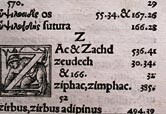 570. 29
os 55.34.&167.26
sutura 166.28
Z
ZAc & Zachd 536.41
zeudech 30.34.
&166. 32
ziphac, zimphac. 385.
52
zirbus, zirbus adipinus 494.39.